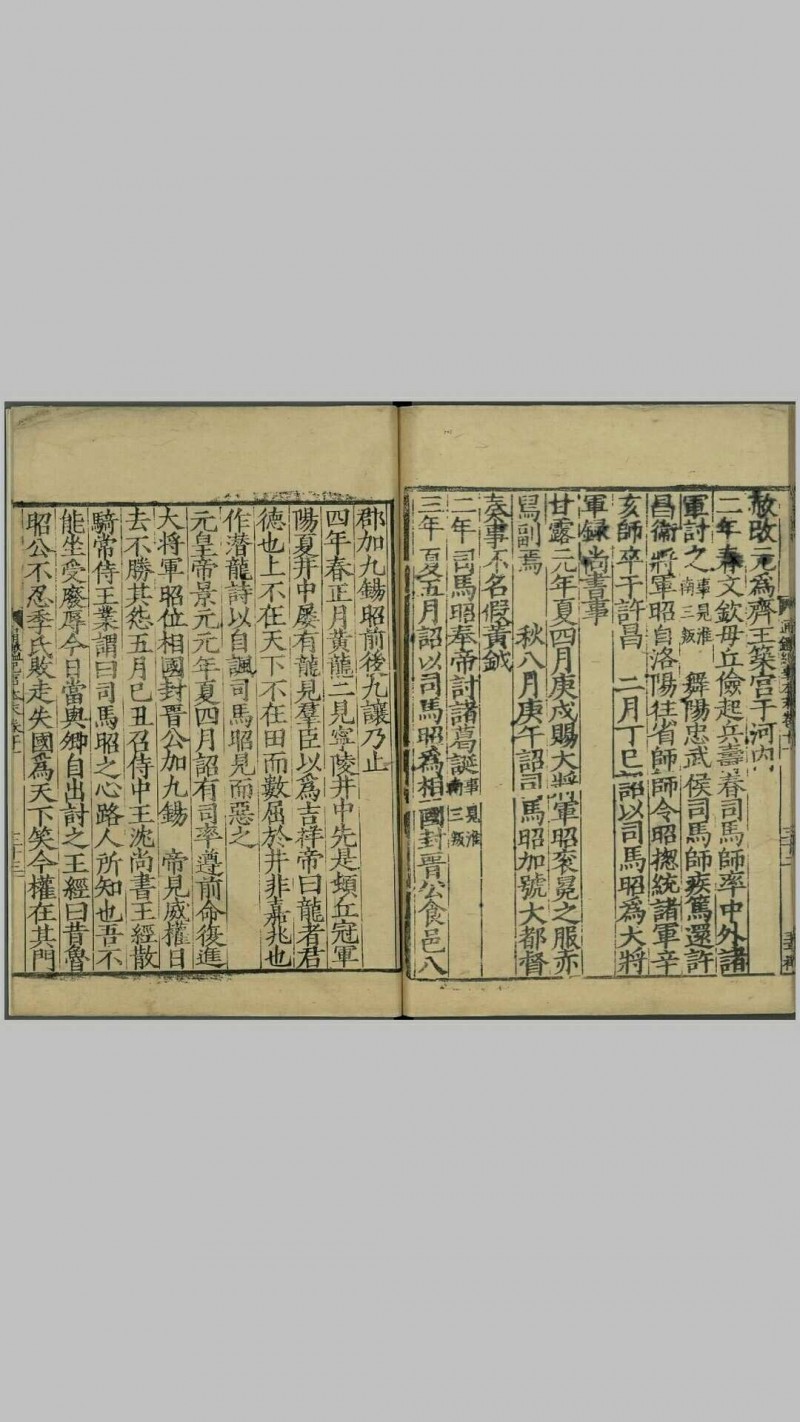 赦改元爲齊王築宮于河内
二年春文欽毋丘儉起兵壽春司馬師率中外諸
軍討之事見淮南三叛 舞陽忠武侯司馬師疾篤還許
昌衞將軍昭自洛陽往省師師令昭揔統諸軍辛
亥師卒于許昌 二月丁巳詔以司馬昭爲大將
軍録尚書事
甘露元年夏四月庚戌賜大將軍昭衮冕之服赤
舄副焉 秋八月庚午詔司馬昭加號大都督
奏事不名假黃鉞
二年司馬昭奉帝討諸葛誕事見淮南三叛
三年夏五月詔以司馬昭爲相國封晋公食邑八
郡加九錫昭前後九讓乃止
四年春正月黃龍二見寧陵井中先是頓丘冠軍
陽夏井中屡有龍見羣臣以爲吉祥帝曰龍者君
德也上不在天下不在田而數屈於井非嘉兆也
作潛龍詩以自諷司馬昭見而惡之
元皇帝景元元年夏四月詔有司率遵前命復進
大將軍昭位相國封晋公加九錫 帝見威權日
去不勝其忿五月己丑召侍中王沈尚書王經散
騎常侍王業謂曰司馬昭之心路人所知也吾不
能坐受廢辱今日當與卿自出討之王經曰昔魯
昭公不忍季氏敗走失國爲天下笑今權在其門